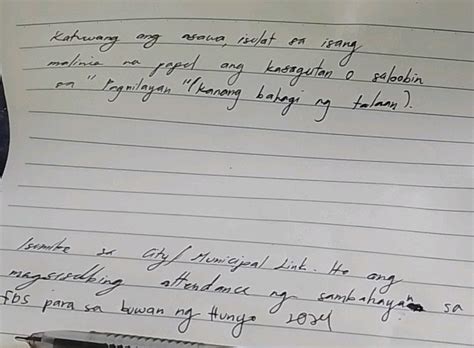 Katuwang ang asawa, isulat sa isang
malinis na papel ang kasagutan o saloobin
sa "Pagnilayan" (kanang bahagi ng talaan).
Isumite sa City/Municipal Link. Ito ang
magsisilbing attendance ng sambahayan sa
FDS para sa buwan ng Hunyo 2024